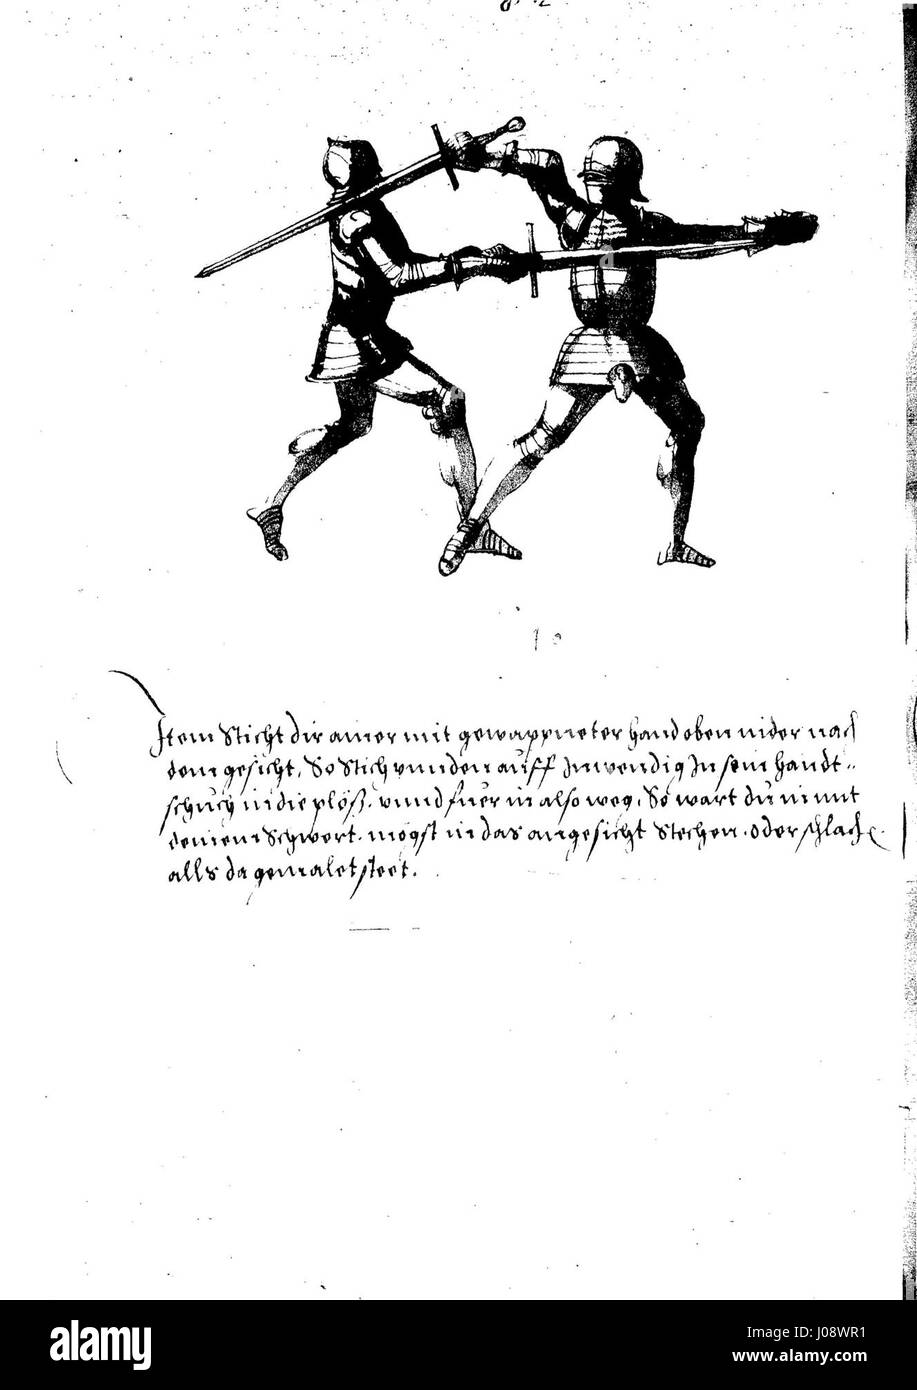 10
Item Sticht dir ainer mit gewappneter hand oben nider nach
dem gesicht, So Stich vnnden auff Inwendig In sein handt„
schuch in die plöß. vnnd fuer in also weg, So wart du in mit
deinem Schwert. mögst in das angesicht Stechen. oder schlach„
alls da gemalet steet.
a
alamy
Image ID: J08WR1
www.alamy.com